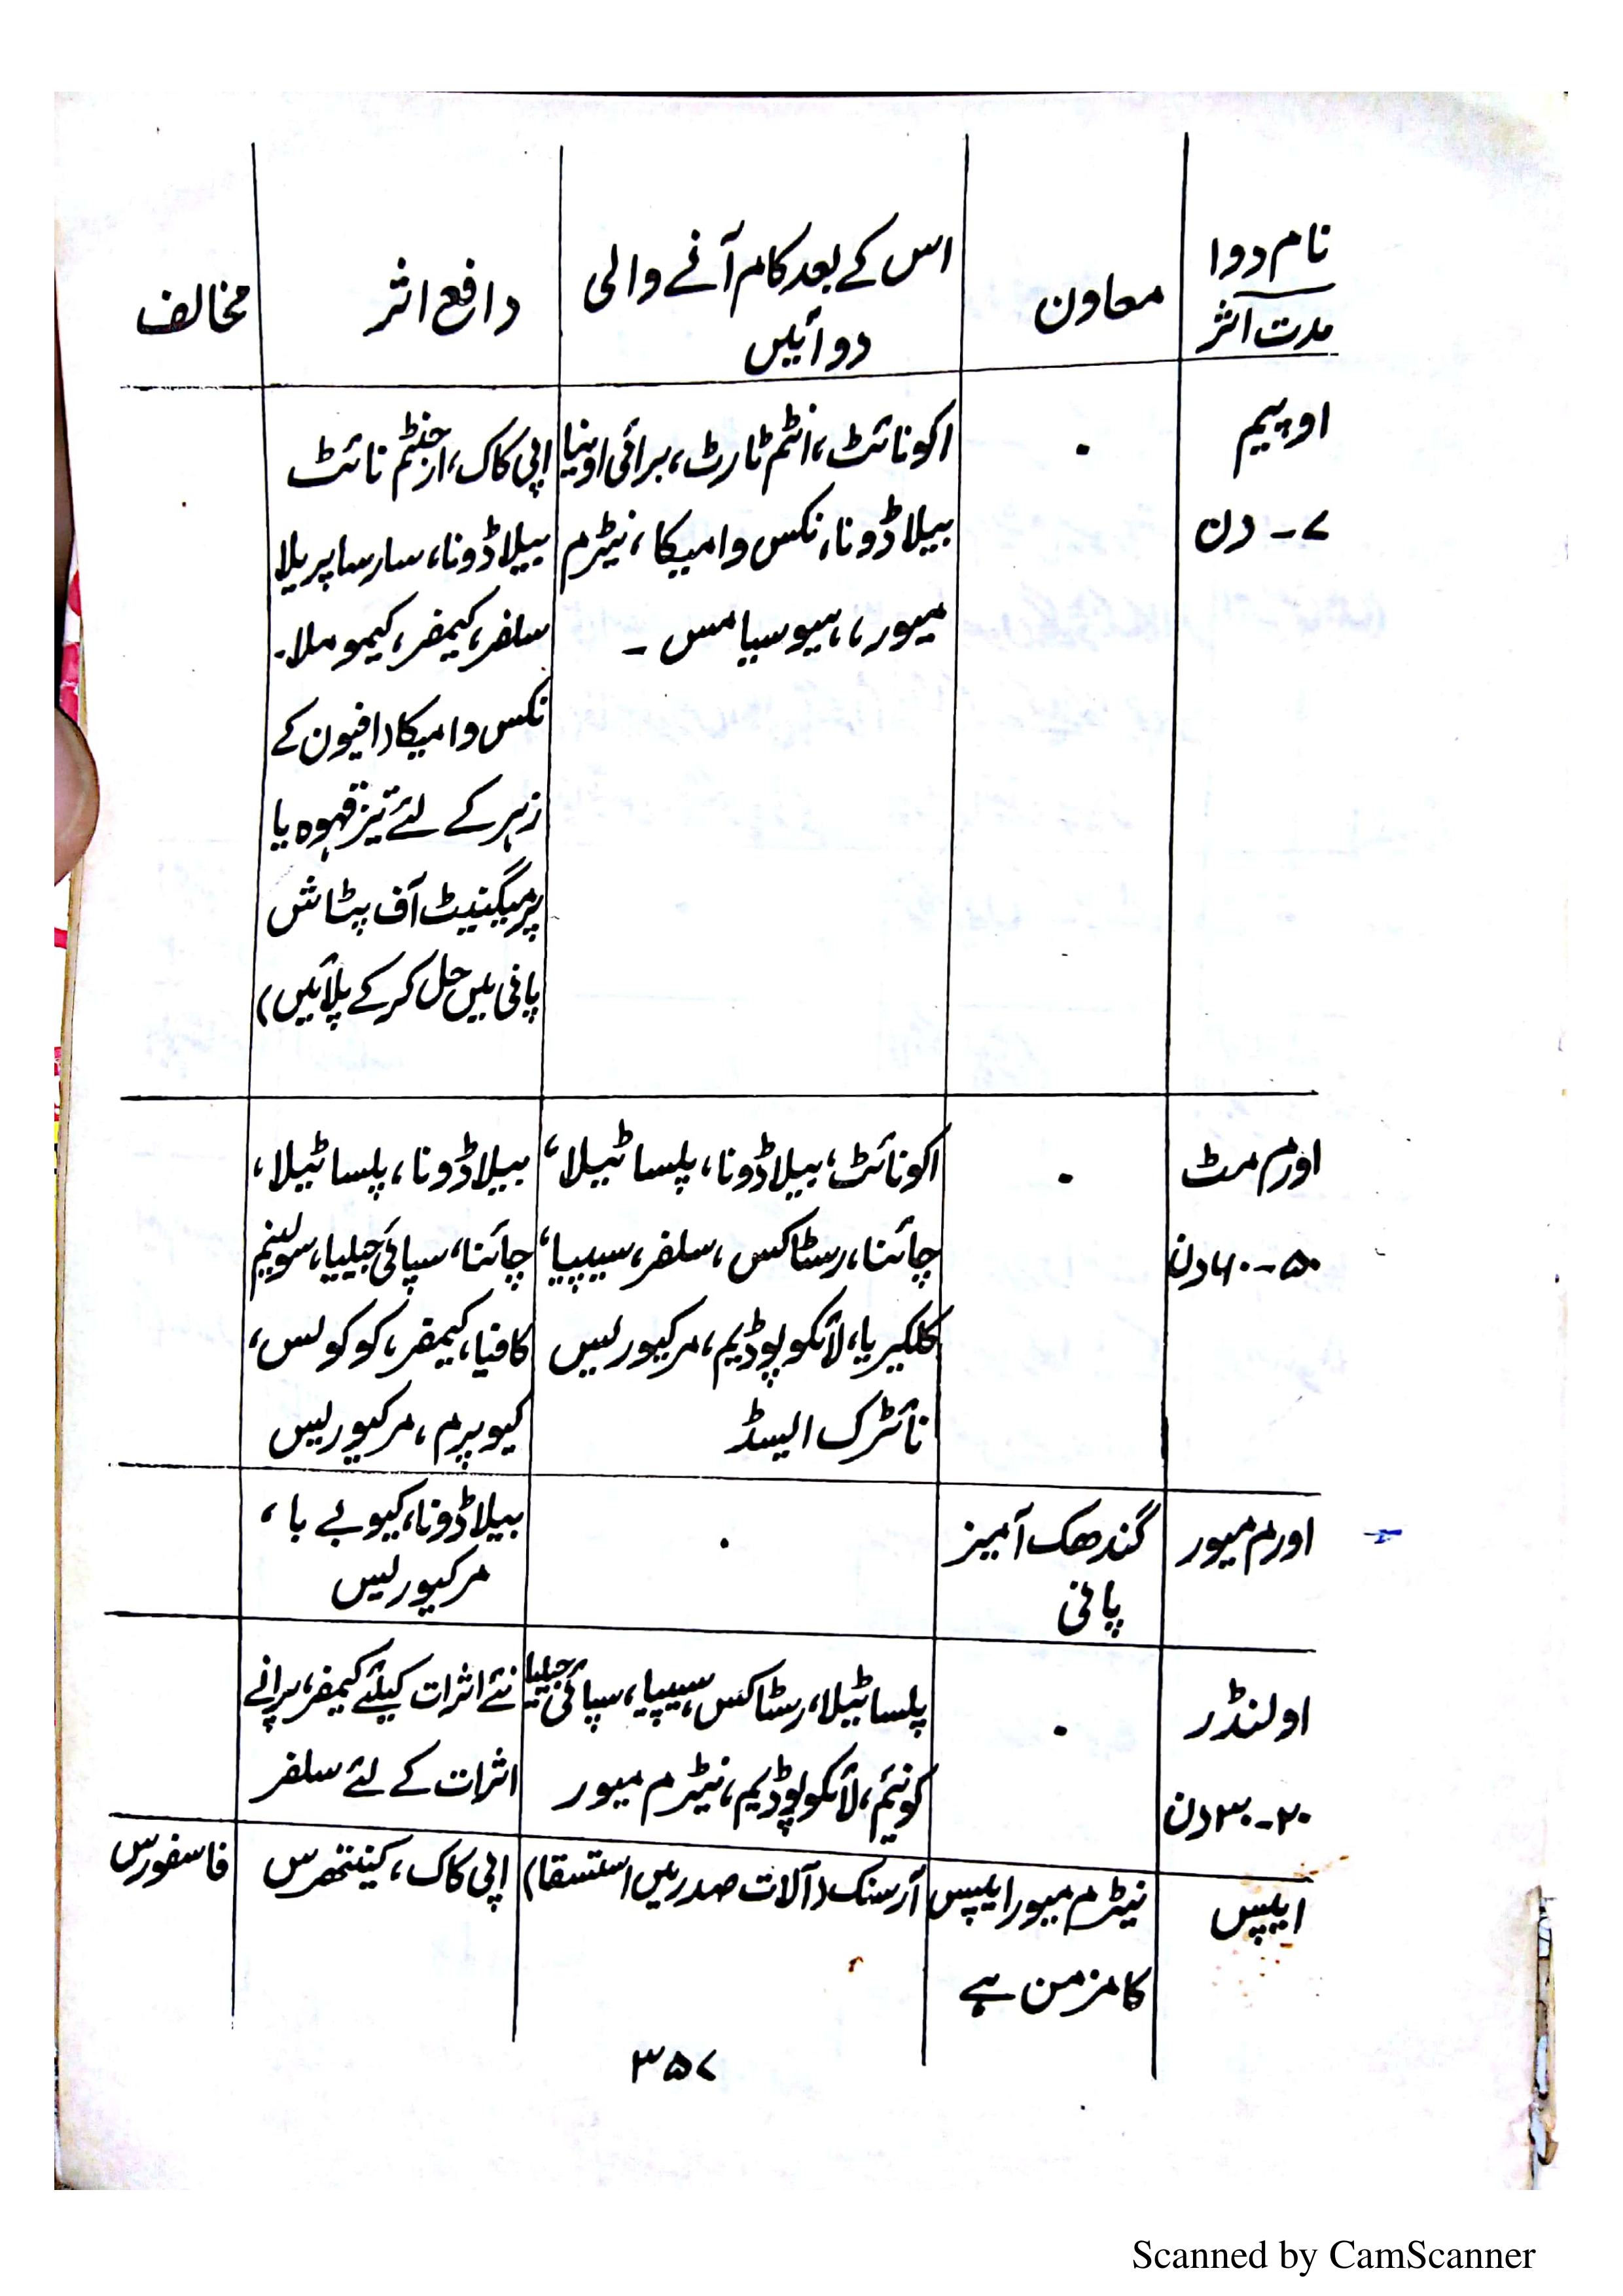 نام دوا
مدت اثر
معاون
اس کے بعد کام آنے والی
دوائیں
دافع اثر
مخالف
اوپیم
۷ - دن
۰
اکونائٹ، انٹم ٹارٹ، برائی اونیا
بیلاڈونا، نکس وامیکا، نیٹرم
میور، ہیوسیامس ۔
اپی کاک، ارجنٹم نائٹ
بیلاڈونا، سارساپریلا
سلفر، کیمفر، کیموملا۔
نکس وامیکا (افیون کے
زہر کے لئے تیز قہوہ یا
پرمیگنیٹ آف پٹاش
پانی میں حل کرکے پلائیں)
اورم مٹ
۵۰-۶۰ دن
۰
اکونائٹ، بیلاڈونا، پلساٹیلا،
چائنا، رسٹاکس، سلفر، سیپیا،
کلکیریا، لائکوپوڈیم، مرکیوریس
نائٹرک ایسڈ
بیلاڈونا، پلساٹیلا،
چائنا، سپائی جیلیا، سولینم
کافیا، کیمفر، کوکولس،
کیوپرم، مرکیوریس
اورم میور
گندھک آمیز
پانی
۰
بیلاڈونا، کیوبے با،
مرکیوریس
اولنڈر
۲۰-۳۰ دن
۰
پلساٹیلا، رسٹاکس، سیپیا، سپائی جیلیا
کونیئم، لائکوپوڈیم، نیٹرم میور
نئے اثرات کیلئے کیمفر، پرانے
اثرات کے لئے سلفر
ایپس
نیٹرم میور ایپس
کا مزمن ہے
آرسنک (آلات صدر میں استسقا)
اپی کاک، کینتھرس
فاسفورس
۳۵۷
Scanned by CamScanner